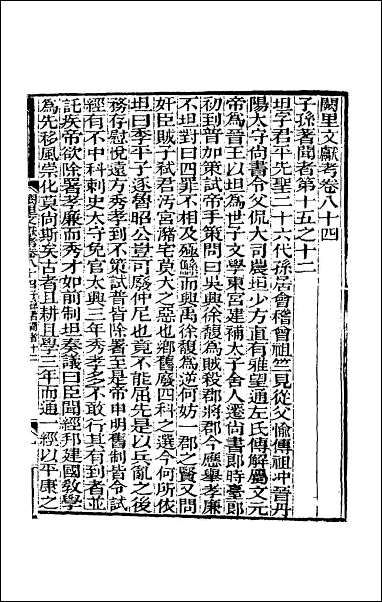 闕里文獻考卷八十四
子孫著聞者第十五之十二
坦字君平先聖二十六代孫居會稽曾祖竺見從父愉傳祖沖晉丹
陽太守尚書令父侃大司農坦少方直有雅望通左氏傳解屬文元
帝為晉王以坦為世子文學東宮建補太子舍人遷尚書郎時臺郎
初到普加策試帝手策問曰吳興徐馥為賊殺郡將郡今應舉孝廉
不坦對曰四罪不相及殛鯀而興禹徐馥為逆何妨一郡之賢又問
奸臣賊子弒君汚宮瀦宅莫大之惡也鄉舊廢四科之選今何所依
坦曰季平子逐魯昭公豈可廢仲尼也竟不能屈先是以兵亂之後
務存慰悅遠方秀孝到不策試普皆除署至是帝申明舊制皆令試
經有不中科刺史太守免官太興三年秀孝多不敢行其有到者並
託疾帝欲除署孝廉而秀才如前制坦奏議曰臣聞經邦建國敎學
為先移風崇化莫尚斯矣古者且耕且學三年而通一經以平康之
闕里文獻考卷八十四 子孫著聞者十二 一